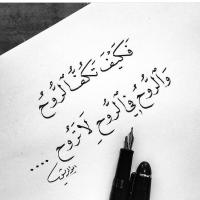 فَكَيْفَ تَكُفُّ ٱلرُّوحُ
وَٱلرُّوحُ فِي ٱلرُّوحِ لَا تَرُوحُ ....